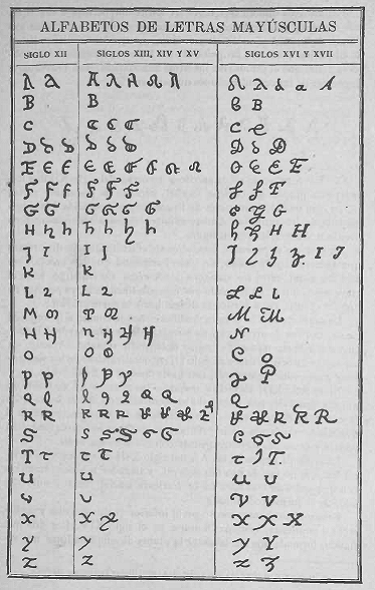 ALFABETOS DE LETRAS MAYÚSCULAS
SIGLO XII SIGLOS XIII, XIV Y XV SIGLOS XVI Y XVII
A A A A A A A A A A a A
B B B B
C C C C C C
D D D D D D D D D
E E E E E E E E E E E E E
F F F F F F F F F
G G G G G G G G G
H h h h h h h h h H H
J I I J J J J J I J
K K
L 2 L 2 L L L
M M M M M M
H H n H H H N
O O O C O
P P P P P P P
Q Q Q Q Q Q Q Q
R R R R R R R R R R R R R R
S S S S S S S S
T T T T T J T.
U U U U
V V V V
X X X X X X
Y Y Y Y
Z Z Z Z